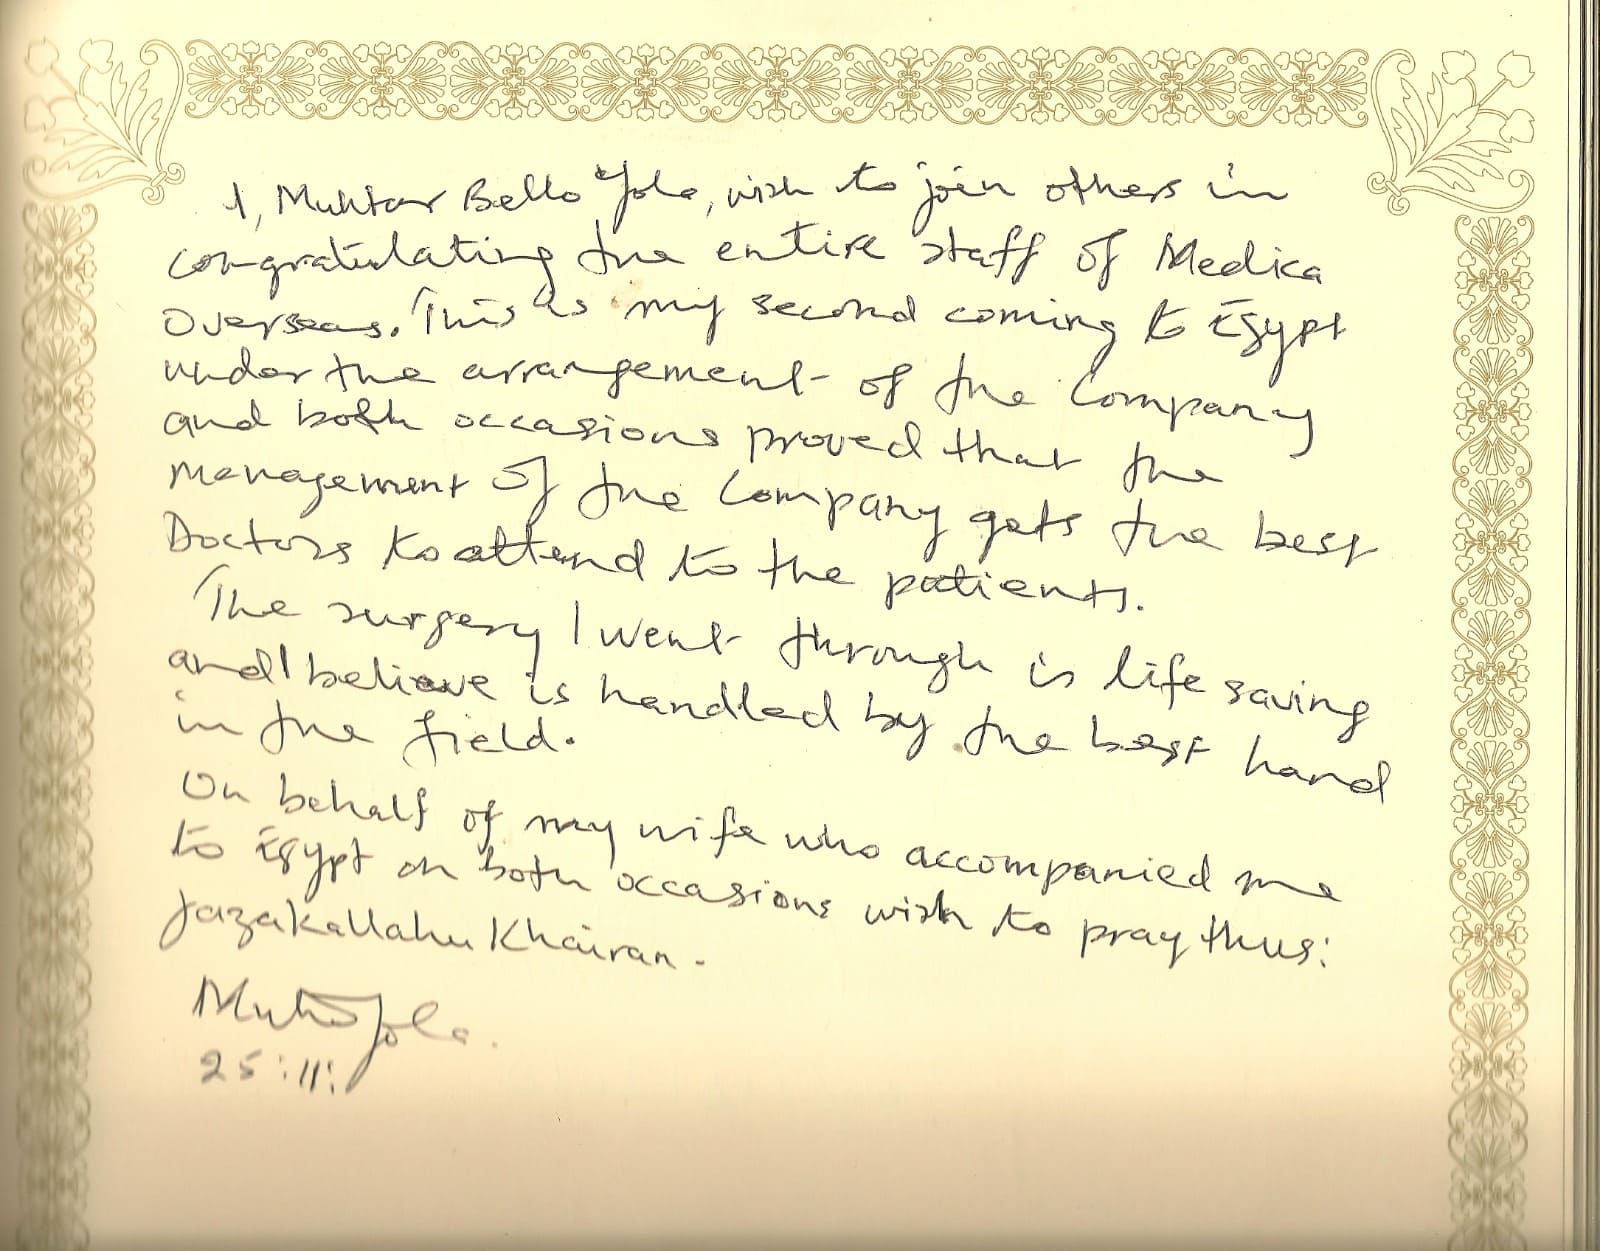 I, Muhtar Bello Yola, wish to join others in
congratulating the entire staff of Medica
Overseas. This is my second coming to Egypt
under the arrangement of the Company
and both occasions proved that the
management of the Company gets the best
Doctors to attend to the patients.
The surgery I went through is life saving
and I believe is handled by the best hand
in the field.
On behalf of my wife who accompanied me
to Egypt on both occasions wish to pray thus:
Jazakallahu Khairan.
25:11: